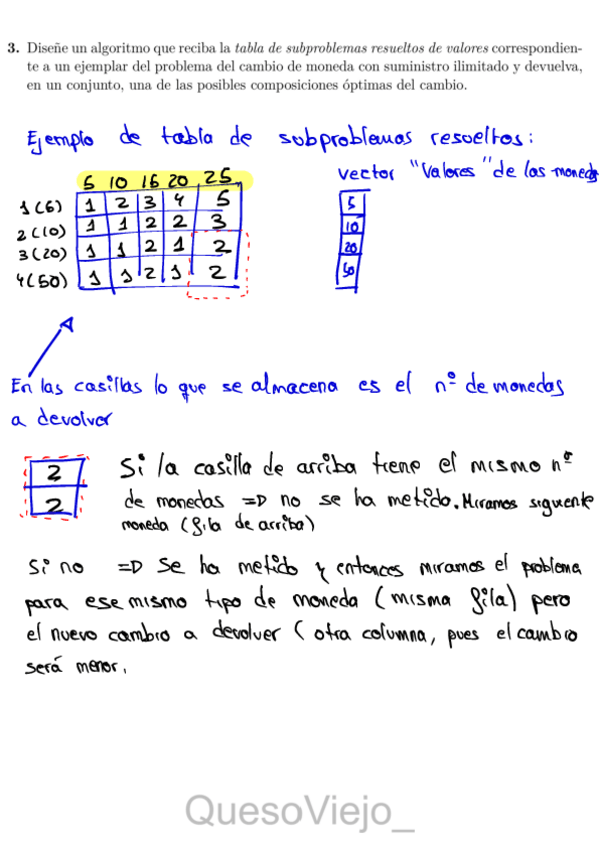 3. Diseñe un algoritmo que reciba la tabla de subproblemas resueltos de valores correspondien-
te a un ejemplar del problema del cambio de moneda con suministro ilimitado y devuelva,
en un conjunto, una de las posibles composiciones óptimas del cambio.
Ejemplo de tabla de subproblemas resueltos:
vector "Valores" de las monedas
5 10 15 20 25
1 (5) 1 2 3 4 5
2 (10) 1 1 2 2 3
3 (20) 1 1 2 1 2
4 (50) 1 1 2 1 2
5
10
20
50
En las casillas lo que se almacena es el nº de monedas
a devolver
2
2
Si la casilla de arriba tiene el mismo nº
de monedas => no se ha metido. Miramos siguiente
moneda (fila de arriba)
Si no => se ha metido y entonces miramos el problema
para ese mismo tipo de moneda (misma fila) pero
el nuevo cambio a devolver (otra columna, pues el cambio
será menor.
QuesoViejo_